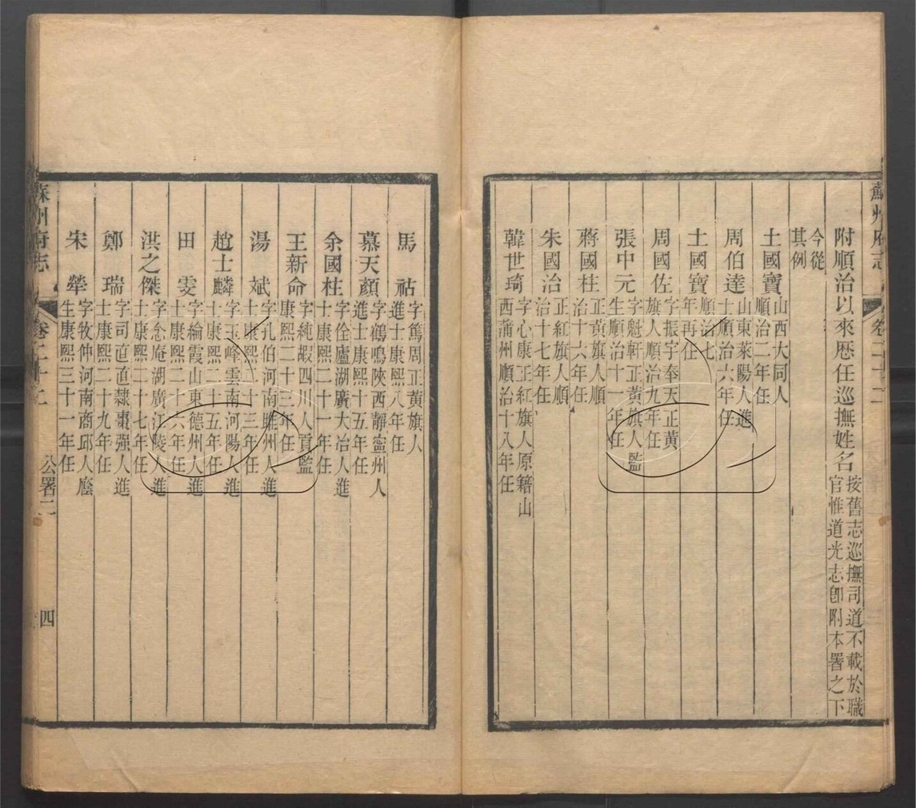 蘇州府志 卷二十二
附順治以來歷任巡撫姓名 按舊志巡撫司道不載於職官惟道光志卽附本署之下
今從其例
土國寶 山西大同人順治二年任
周伯達 山東萊陽人進士順治六年任
土國寶 順治七年再任
周國佐 字振宇奉天正黃旗人順治九年任
張中元 字魁軒正黃旗人監生順治十一年任
蔣國柱 正黃旗人順治十六年任
朱國治 正紅旗人順治十七年任
韓世琦 字心康正紅旗人原籍山西蒲州順治十八年任
馬祜 字篤周正黃旗人進士康熙八年任
慕天顏 字鶴鳴陝西靜寧州人進士康熙十五年任
余國柱 字佺廬湖廣大冶人進士康熙二十一年任
王新命 字純嘏四川人貢監康熙二十三年任
湯斌 字孔伯河南睢州人進士康熙二十三年任
趙士麟 字玉峰雲南河陽人進士康熙二十五年任
田雯 字綸霞山東德州人進士康熙二十六年任
洪之傑 字念庵湖廣江陵人進士康熙二十七年任
鄭瑞 字司直直隸棗强人進士康熙二十九年任
宋犖 字牧仲河南商邱人廕生康熙三十一年任
蘇州府志 卷二十二 公署二 四